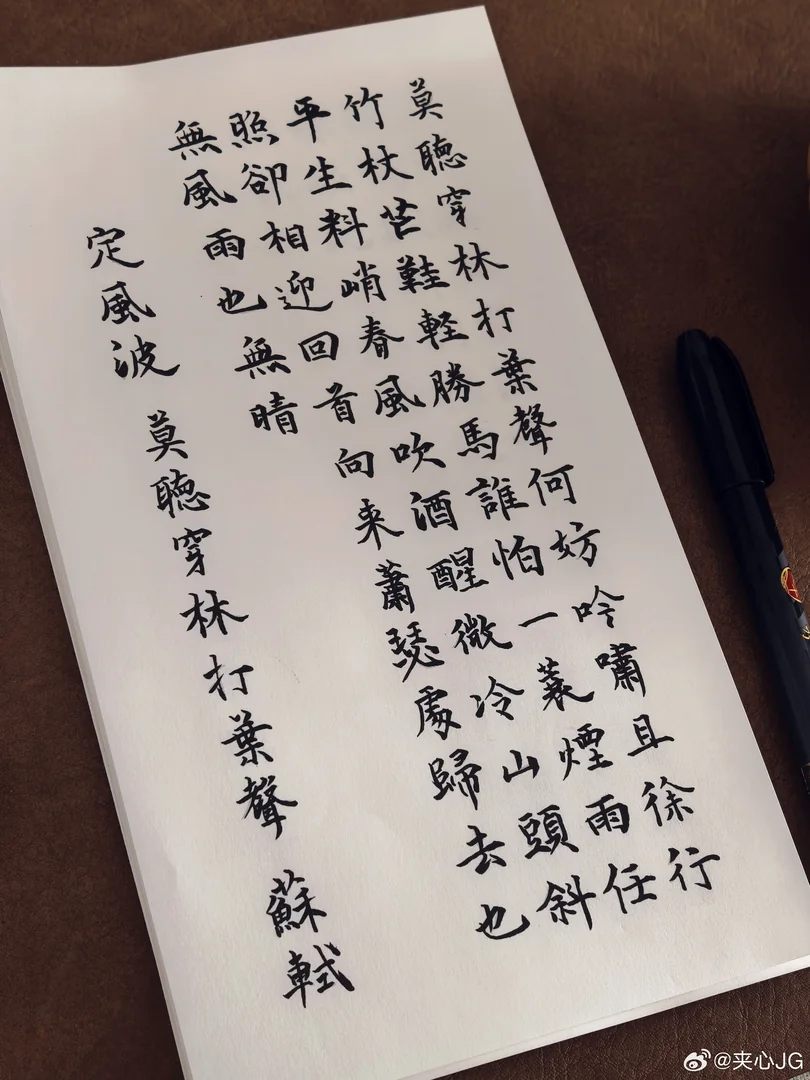 莫聽穿林打葉聲何妨吟嘯且徐行
竹杖芒鞋輕勝馬誰怕一蓑煙雨任
平生料峭春風吹酒醒微冷山頭斜
照卻相迎回首向来蕭瑟處歸去也
無風雨也無晴
定風波 莫聽穿林打葉聲 蘇軾
@夹心JG